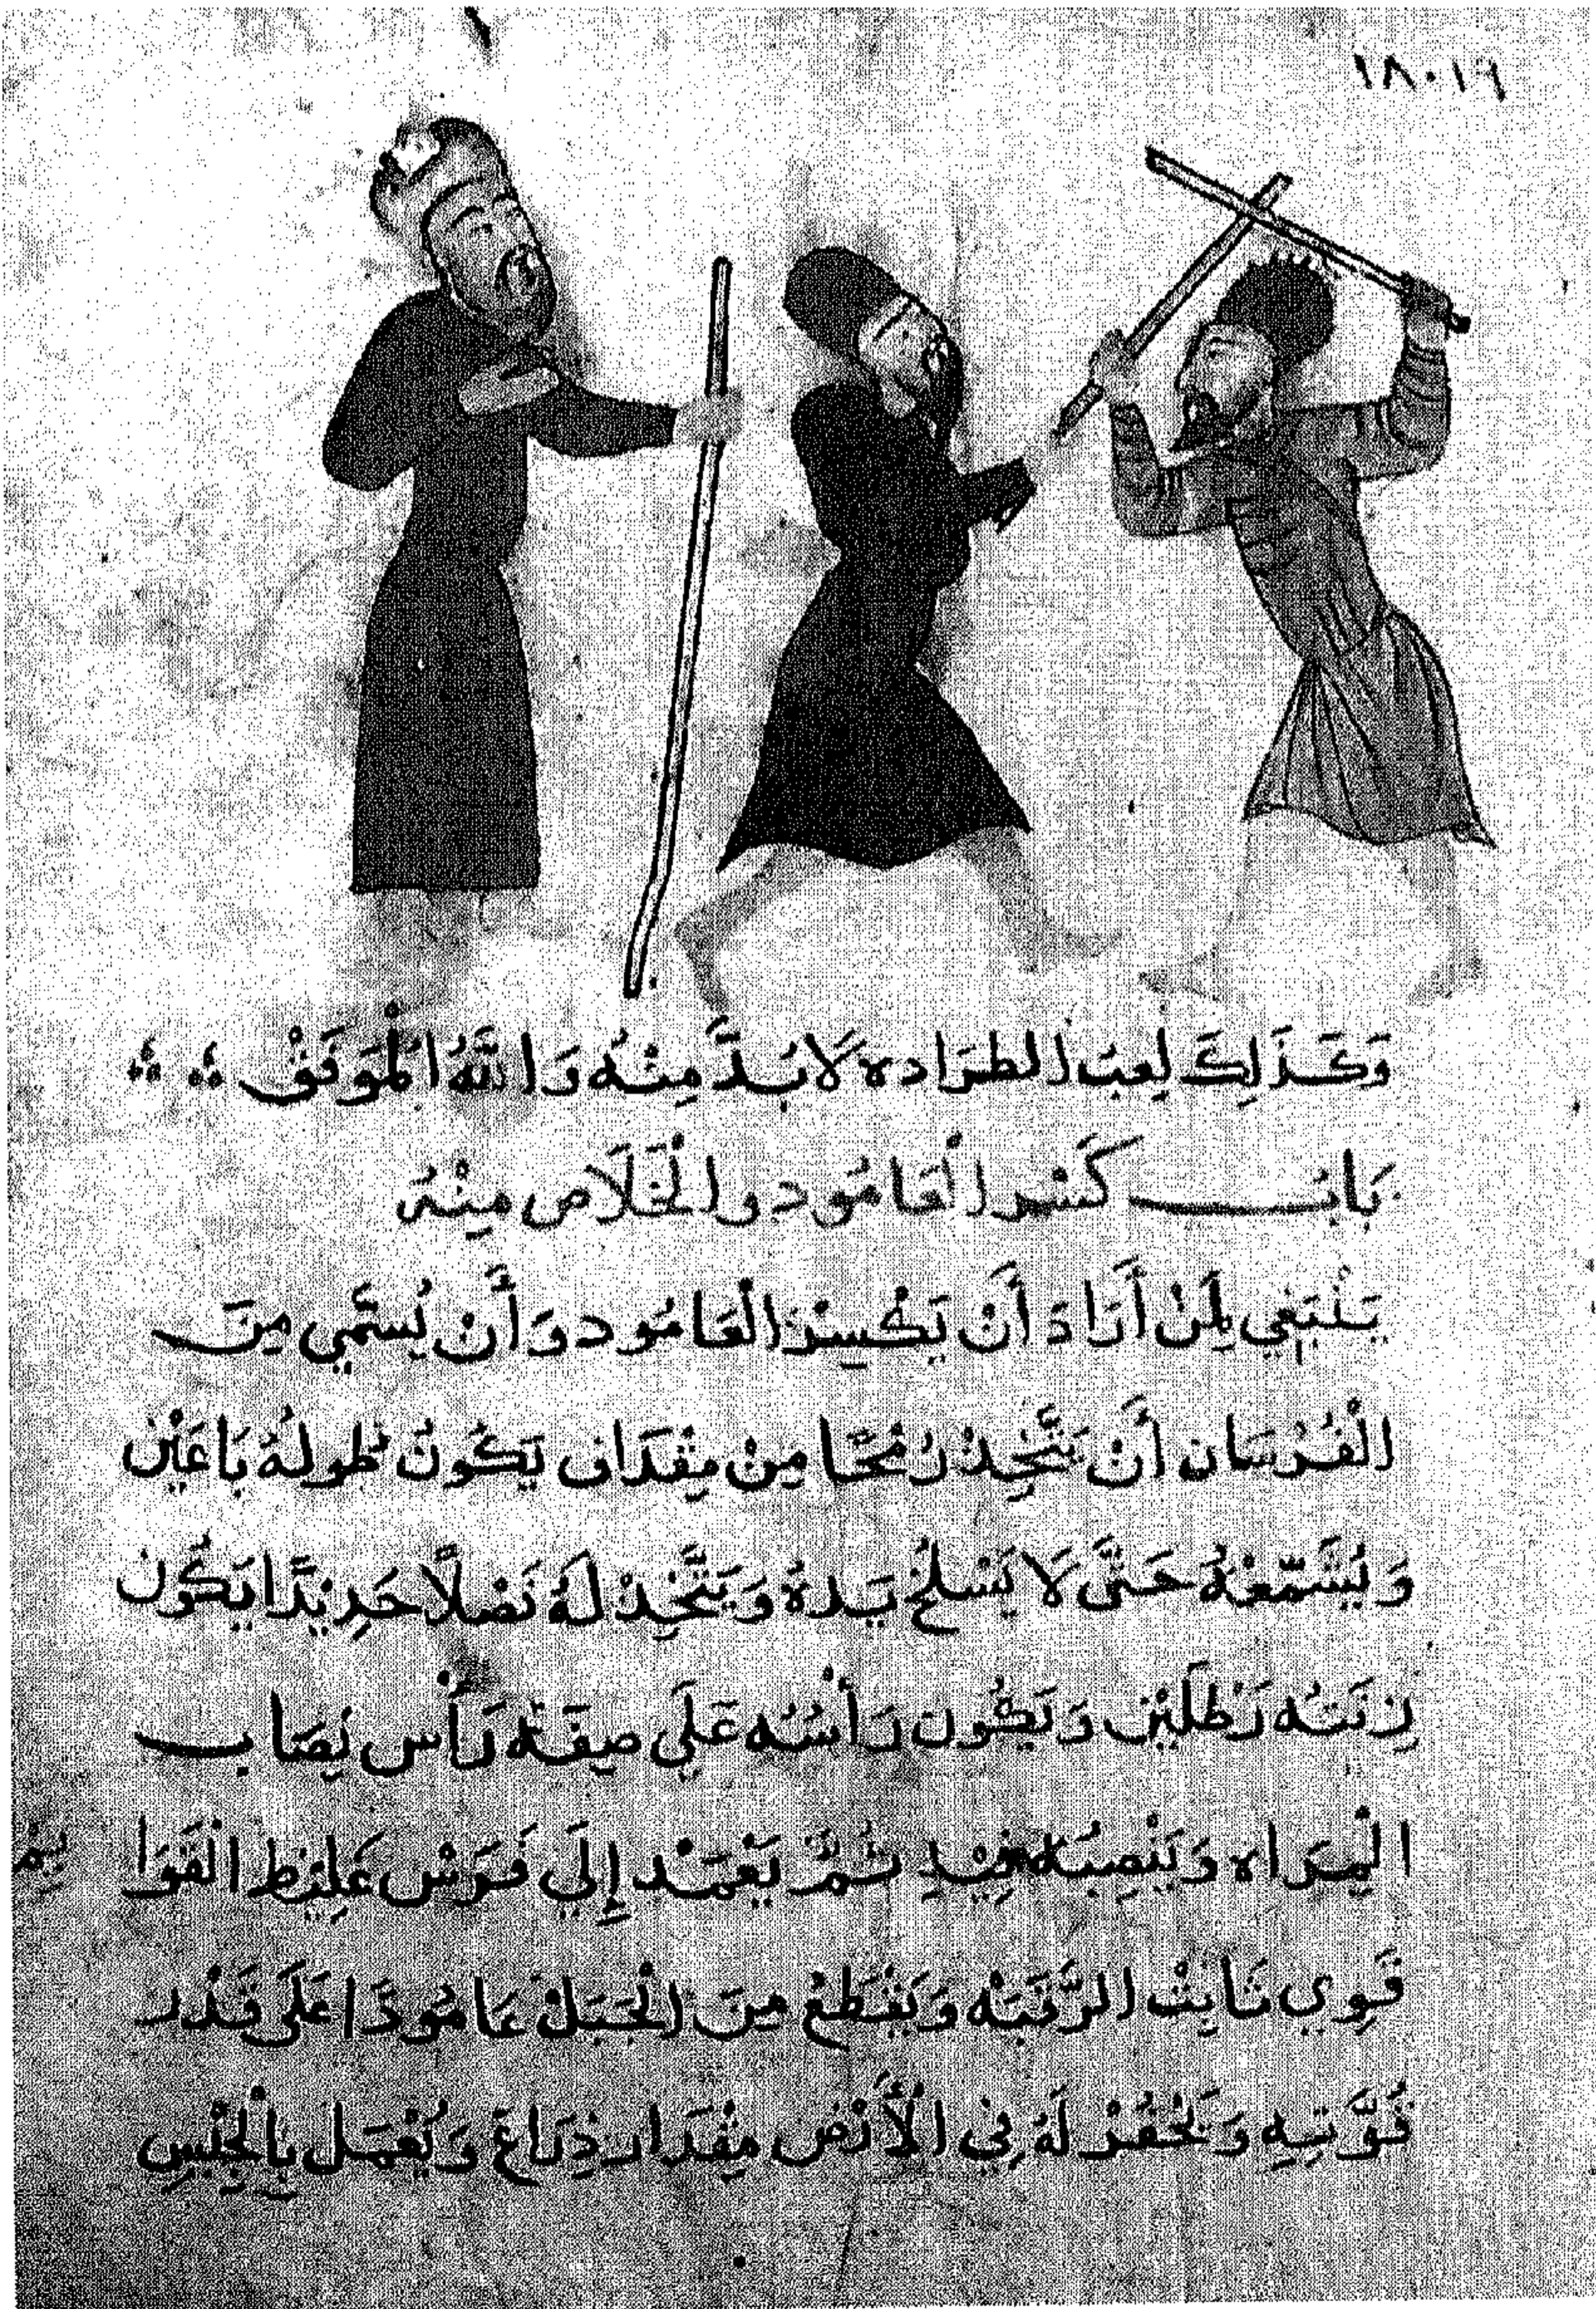 ١٨٠١٦
وَكَذَلِكَ لِعِبُ الطرَاده لَا بُدَّ مِنْهُ وَاللَّهُ الْمُوَفقْ
بَابُ كَسْرِ الْعَامُودِ وَالْخَلَاصِ مِنْهُ
يَنْبَغِي لِمَنْ أَرَادَ أَنْ يَكْسِرَ الْعَامُود وَأَنْ يُسَمَّي مِنَ
الْفُرْسَان أَنْ يَتَّخِذْ رُمْحًا مِنْ يَكُونُ طولهُ بَاعَيْن
وَيُشَمّعهُ حَتَّى لَا يَسْلخ يَدهُ وَيَتَّخِذْ لَهُ نَصْلًا حَدِيْدًا يَكُون
زِنَتهُ رَطْلَيْن وَيَكُون رَأْسُه عَلَي صِفَة رَأْس نِصَاب
الْمِرَاه وَيَنْصِبُه فِيهِ ثُمَّ يَعْمَد إِلَي فَرَسْ غَلِيْظ الْقَوَا يم
قَوِي ثَابِتْ الرَّقَبَهْ وَيَقْطَعْ مِنَ الْجَبَلْ عَامُودًا عَلَى قَدْر
قُوَّتِهِ وَيَحْفُرْ لَهُ فِي الْأَرْض مِقْدَار ذِرَاعْ وَيُعْمَلْ بِالْجِبْسِ